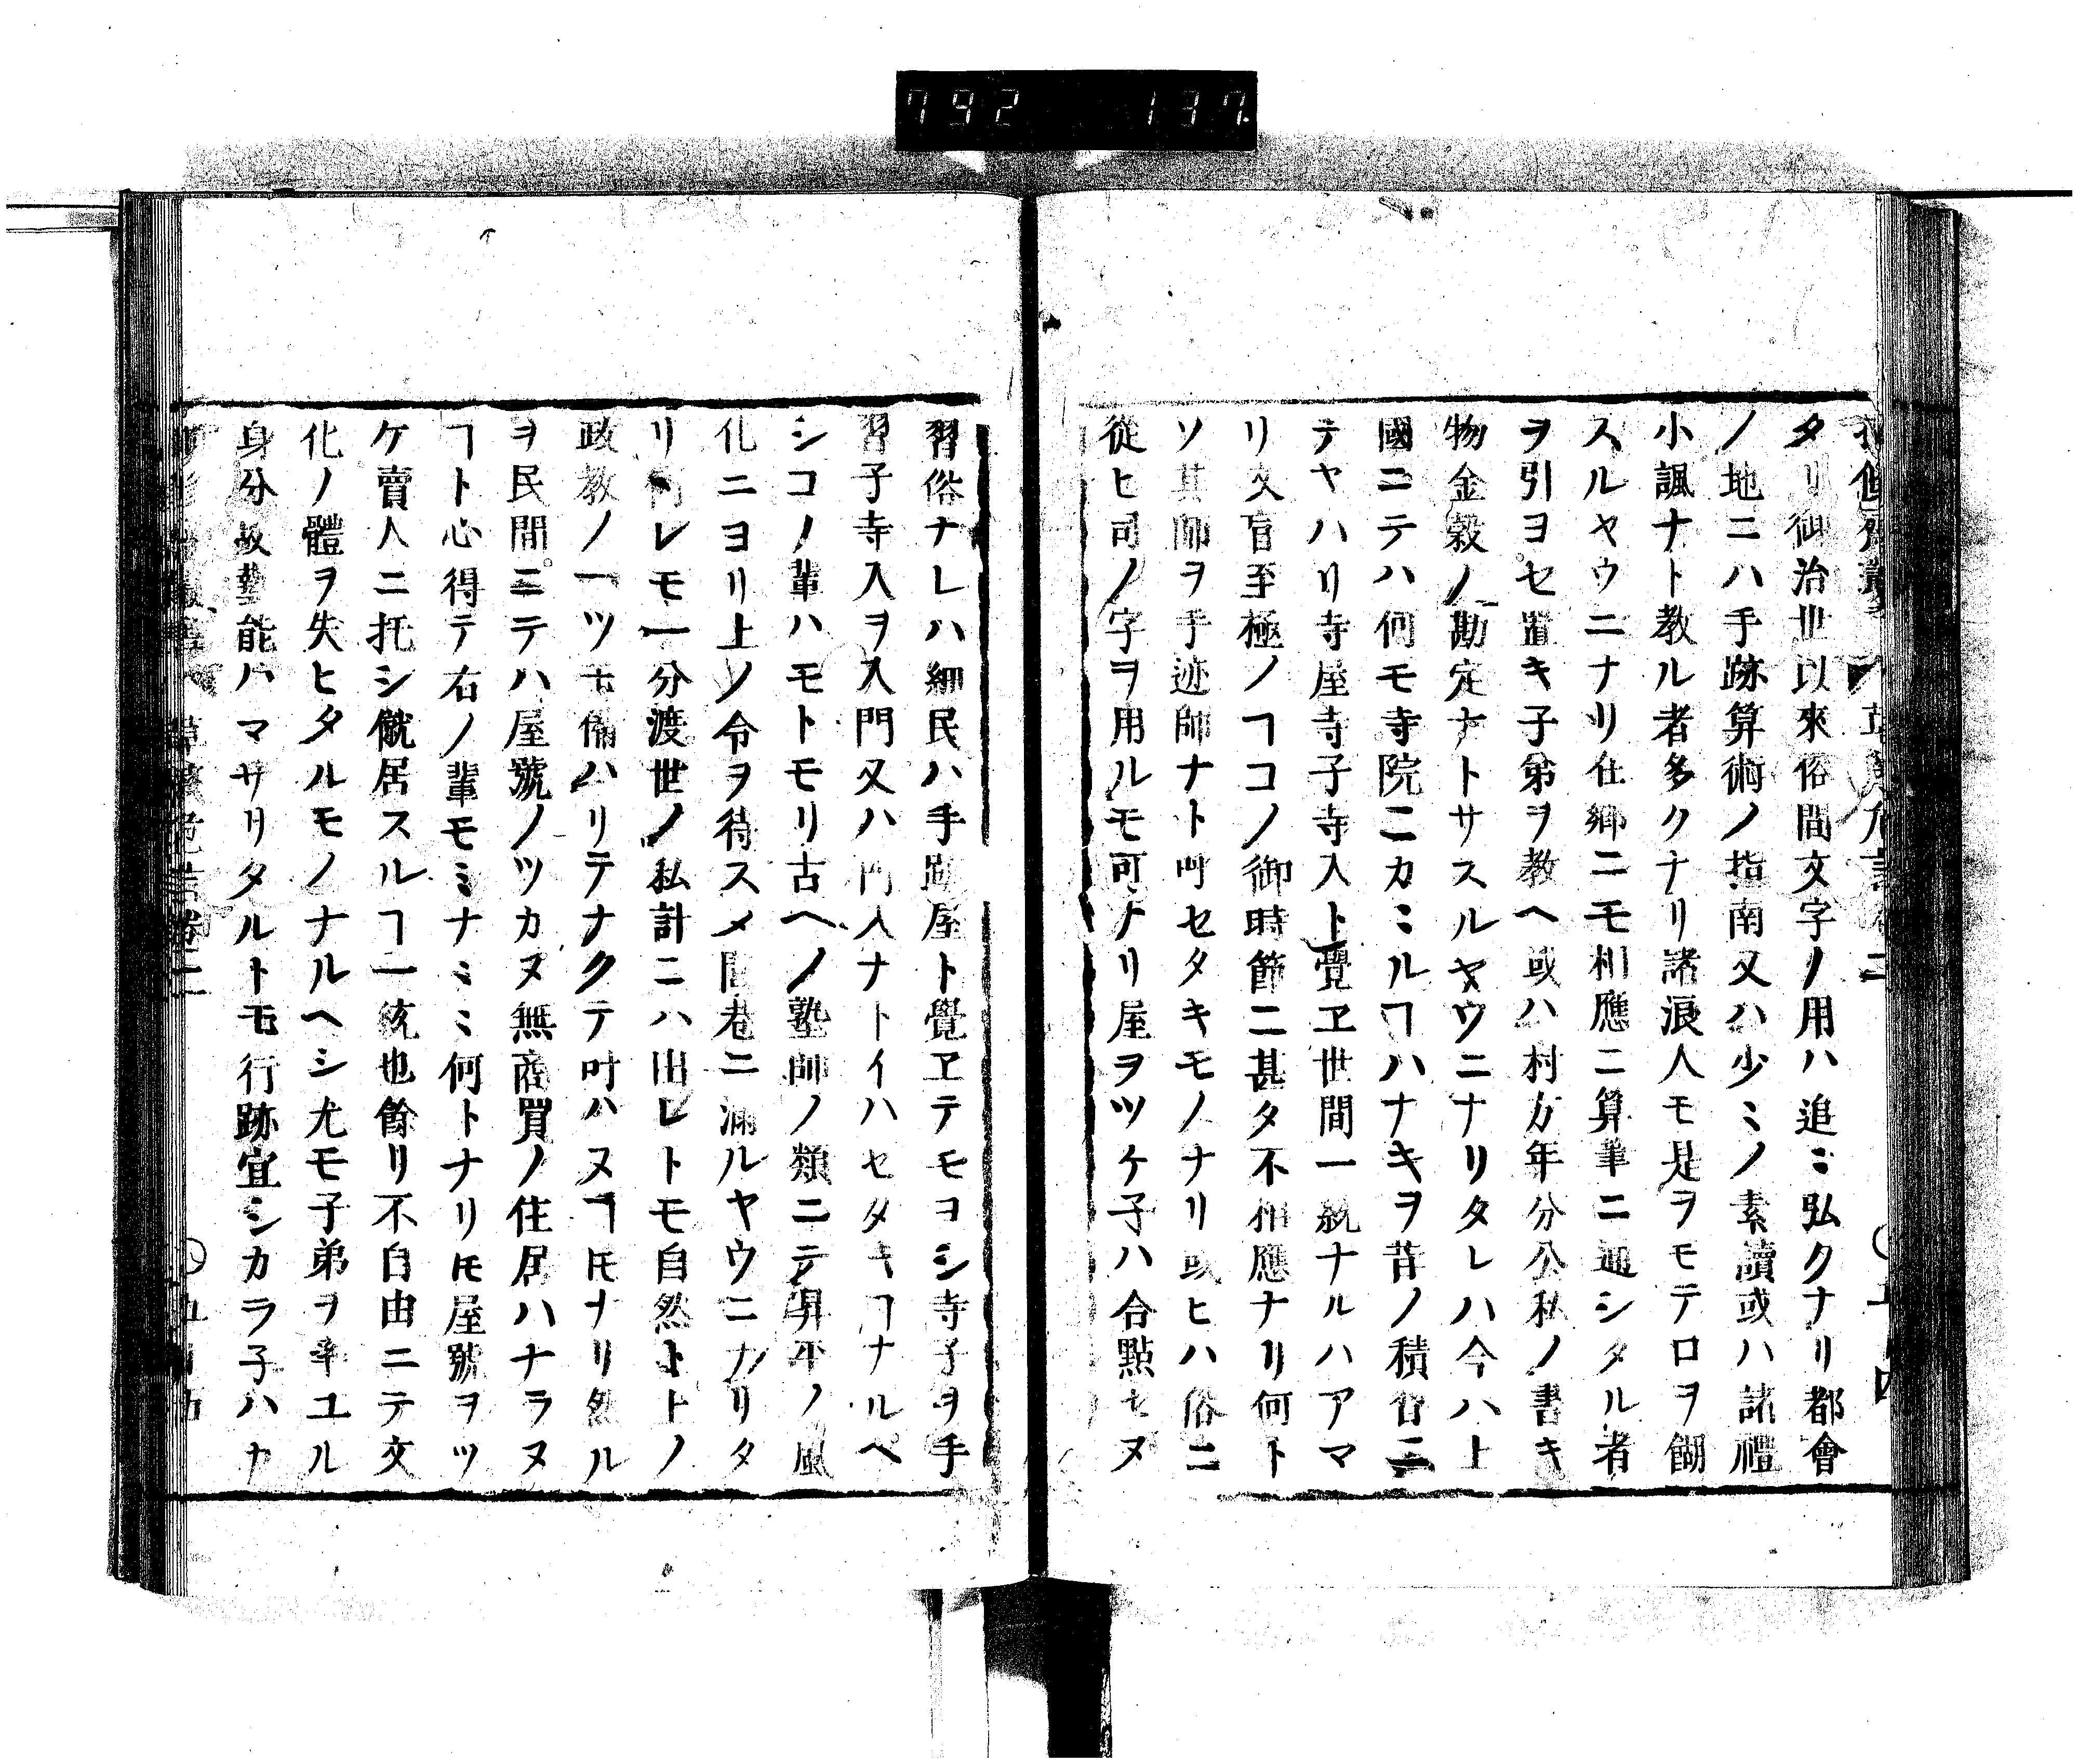 792 137
タリ御治世以來俗間文字ノ用ハ追〻弘クナリ都會
ノ地ニハ手跡算術ノ指南又ハ少ミノ素讀或ハ諸禮
小諷ナト教ル者多クナリ諸浪人モ是ヲモテ口ヲ餬
スルヤウニナリ在郷ニモ相應ニ算筆ニ通シタル者
ヲ引ヨセ置キ子弟ヲ教ヘ或ハ村方年分公私ノ書キ
物金穀ノ勘定ナトサスルヤウニナリタレハ今ハ上
國ニテハ何モ寺院ニカミルヿハナキヲ昔ノ積習ニ
テヤハリ寺屋寺子寺入ト覺ヱ世間一統ナルハアマ
リ文盲至極ノヿコノ御時節ニ甚タ不相應ナリ何ト
ソ其師ヲ手迹師ナト呌セタキモノナリ或ヒハ俗ニ
從ヒ司ノ字ヲ用ルモ可ナリ屋ヲツケ子ハ合點セヌ
習俗ナレハ細民ハ手跡屋ト覺ヱテモヨシ寺子ヲ手
習子寺入ヲ入門又ハ門人ナトイハセタキヿナルベ
シコノ輩ハモトモリ古ヘノ塾師ノ類ニテ昇平ノ風
化ニヨリ上ノ令ヲ待スメ閭巷ニ滿ルヤウニナリタ
リ何レモ一分渡世ノ私計ニハ出レトモ自然トトノ
政教ノ一ツモ備ハリテナクテ叶ハヌヿ𪜈ナリ然ル
ヲ民間ニテハ屋號ノツカヌ無商買ノ住居ハナラヌ
ヿト心得テ右ノ輩モミナミミ何トナリ𪜈屋號ヲツ
ケ賣人ニ托シ僦居スルヿ一統也餘リ不自由ニテ文
化ノ體ヲ失ヒタルモノナルヘシ尤モ子弟ヲ率ユル
身分故藝能ハマサリタルトモ行跡宜シカラ子ハナ